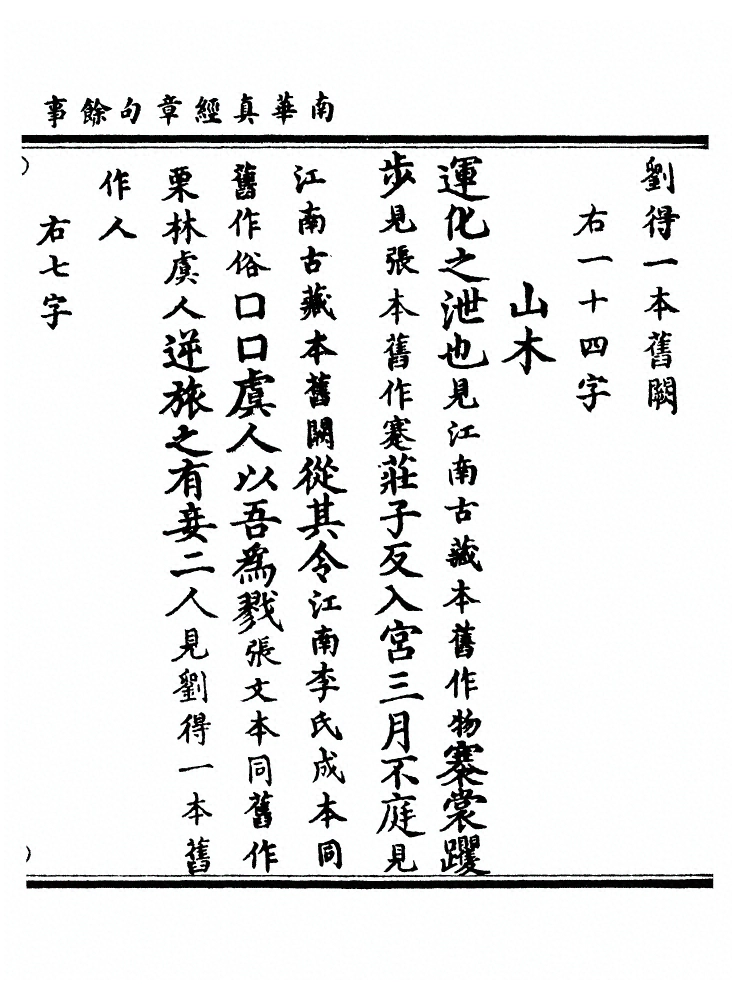 南華真經章句餘事
劉得一本舊闕
右一十四字
山木
運化之泄也見江南古藏本舊作物褰裳躩
步見張本舊作蹇莊子反入宮三月不庭見
江南古藏本舊闕從其令江南李氏成本同
舊作俗口口虞人以吾為戮張文本同舊作
栗林虞人逆旅之有妾二人見劉得一本舊
作人
右七字